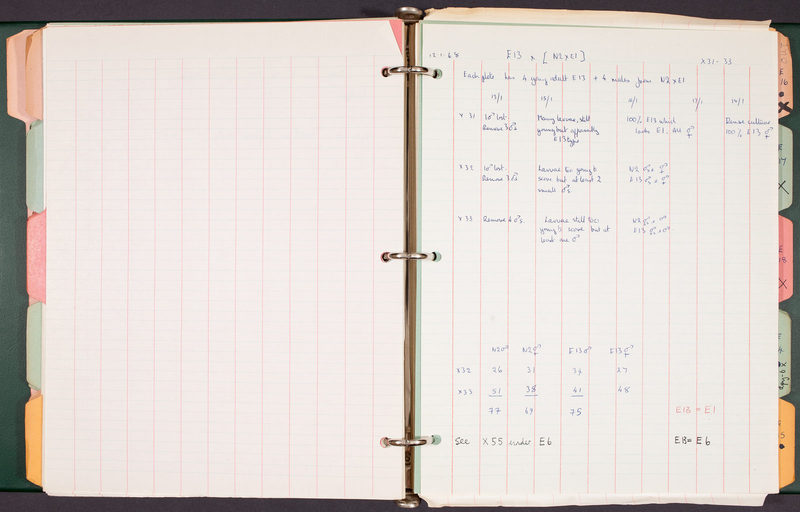 12.1.68 E13 x [N2 x E1] X31-33
Each plate has 4 young adult E13 + 4 males from N2 x E1
15/1 16/1 17/1
X 31 1♂ lost. Many larvae, still 100% E13 which Remove culture
Remove 3♂s young but apparently lacks E1. All ⚥ 100% E13 ⚥
E13 type
X 32 1♂ lost. Larvae too young to N2 ♂s + ⚥
Remove 3♂s score but at least 2 E13 ♂s + ⚥
small ♂s
X 33 Remove 4 ♂s. Larvae still too N2 ♂s + ⚥
young to score but at E13 ♂s + ⚥
least one ♂
N2♂ N2⚥ E13♂ E13⚥
X32 26 31 34 27
X33 51 38 41 48
77 69 75
E13 = E1
See X55 under E6 E13 = E6
E
16
X
E
17
X
E
18
X
E